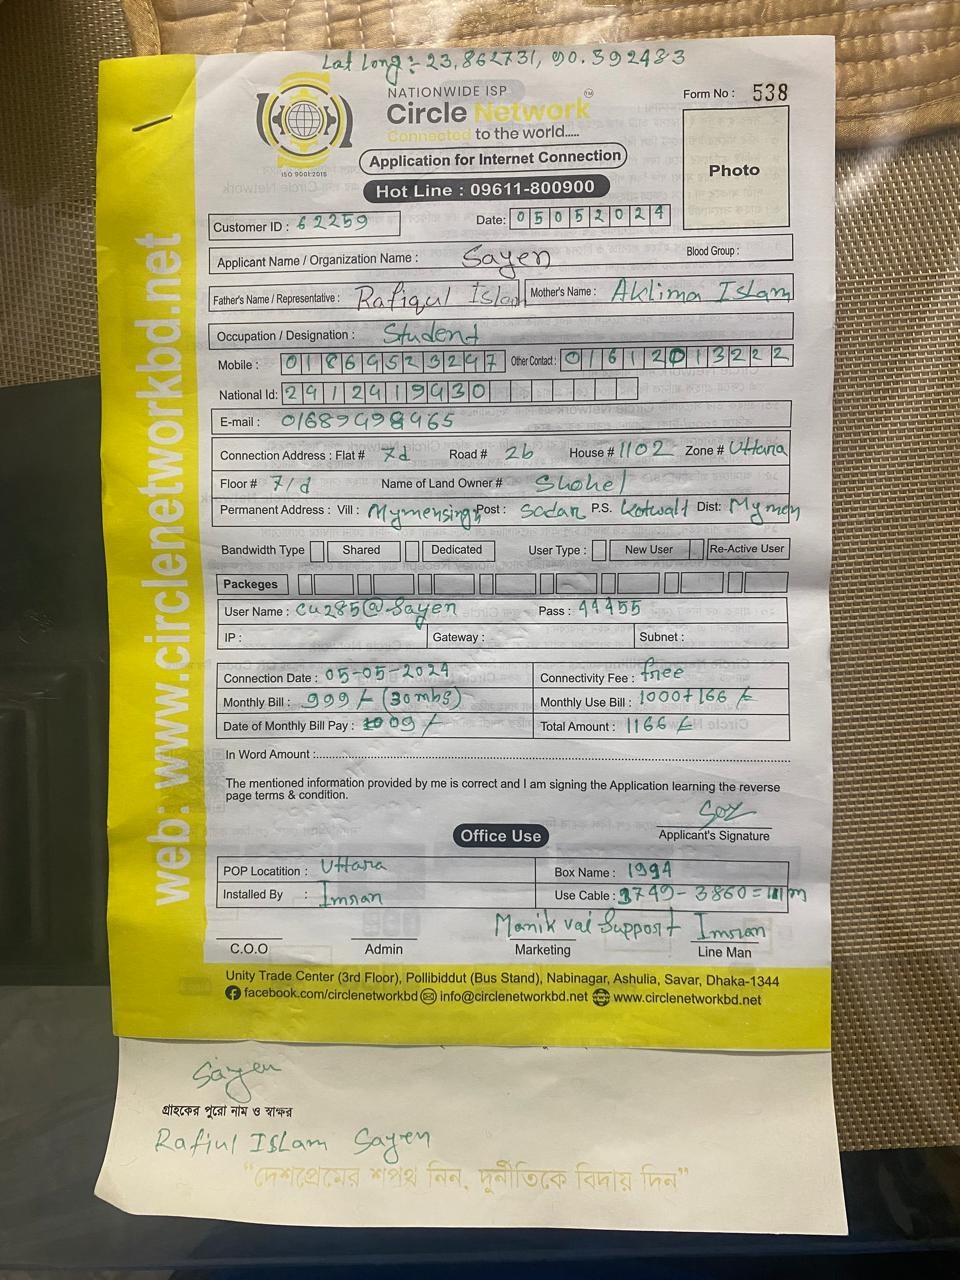 Lat Long :- 23.862731, 90.392483
NATIONWIDE ISP
Circle Network™
Connected to the world.....
ISO 9001:2015
Form No : 538
Photo
Application for Internet Connection
Hot Line : 09611-800900
Customer ID : 62259 Date: 05052024
Applicant Name / Organization Name : Sayen Blood Group :
Father's Name / Representative : Rafiqul Islam Mother's Name : Aklima Islam
Occupation / Designation : Student
Mobile : 01869523297 Other Contact : 01612013222
National Id: 2412419430
E-mail : 01689498465
Connection Address : Flat # 7d Road # 2b House # 1102 Zone # Uttara
Floor # 7/d Name of Land Owner # Shohel
Permanent Address : Vill : Mymensingh Post : Sadar P.S. Kotwali Dist: Mymen
Bandwidth Type Shared Dedicated User Type : New User Re-Active User
Packeges
User Name : cu285@Sayen Pass : 44455
IP : Gateway : Subnet :
Connection Date : 05-05-2024 Connectivity Fee : free
Monthly Bill : 999/- (30mbs) Monthly Use Bill : 1000+166/-
Date of Monthly Bill Pay : 09/- Total Amount : 1166/-
In Word Amount :
The mentioned information provided by me is correct and I am signing the Application learning the reverse
page terms & condition.
Applicant's Signature
Office Use
POP Locatition : Uttara Box Name : 1994
Installed By : Imran Use Cable : 3749-3860=111m
Manik vai Support Imran
C.O.O Admin Marketing Line Man
Unity Trade Center (3rd Floor), Pollibiddut (Bus Stand), Nabinagar, Ashulia, Savar, Dhaka-1344
facebook.com/circlenetworkbd info@circlenetworkbd.net www.circlenetworkbd.net
web: www.circlenetworkbd.net
Sayen
গ্রাহকের পুরো নাম ও স্বাক্ষর
Rafiul Islam Sayen
“দেশপ্রেমের শপথ নিন, দুর্নীতিকে বিদায় দিন”